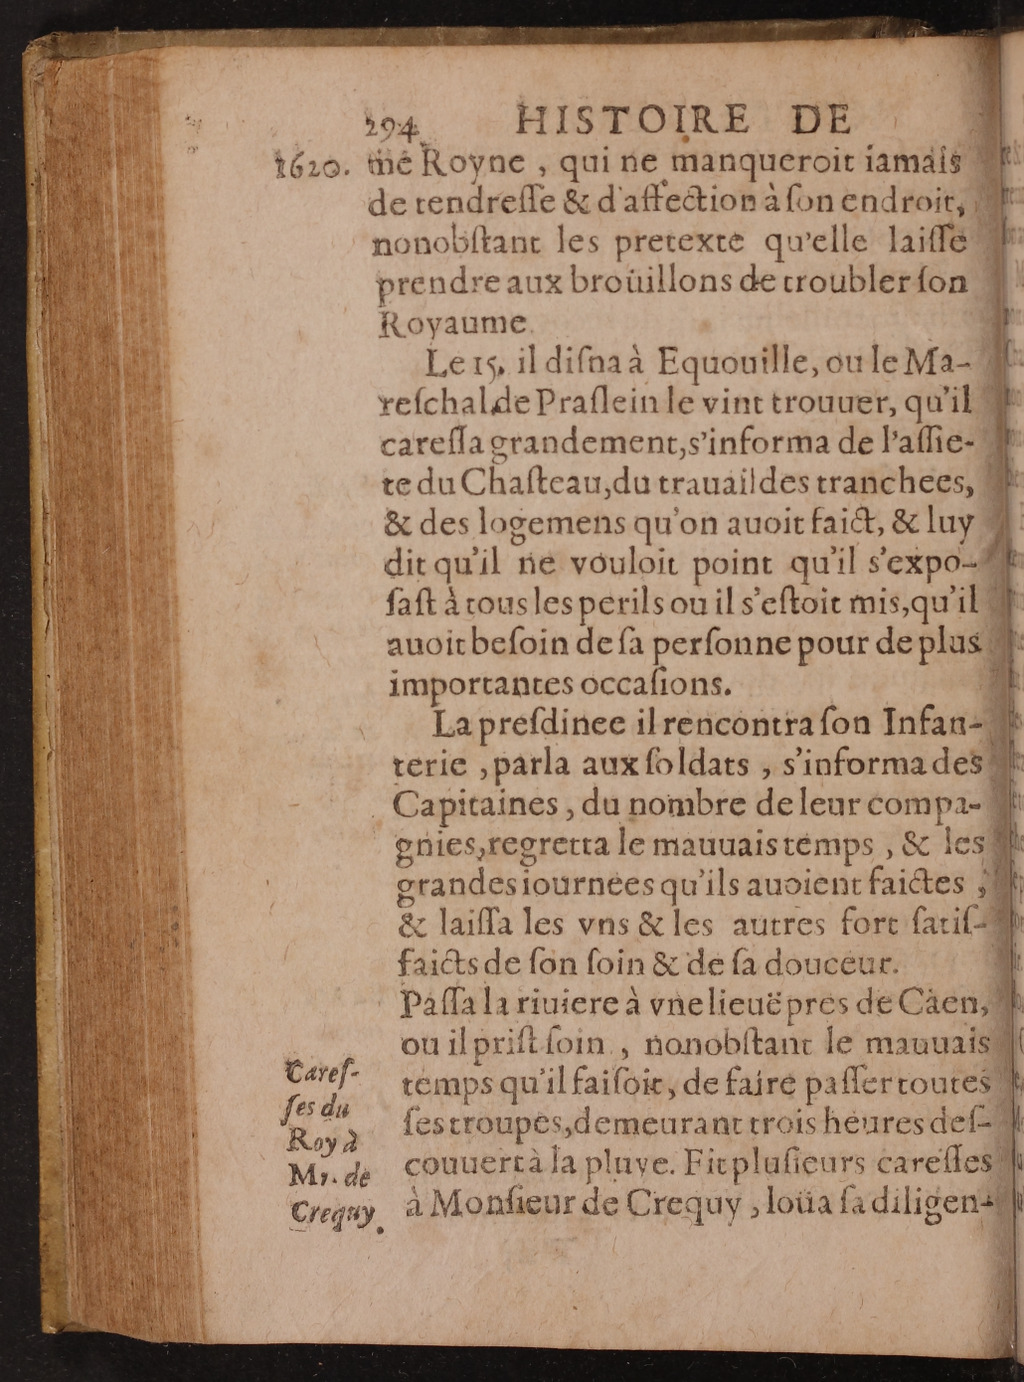 294 HISTOIRE DE
1620. mé Royne , qui ne manqueroit iamais
de tendreſſe & d'affection à ſon endroit,
nonobſtant les pretexte qu'elle laiſſe
prendre aux broüillons de troubler ſon
Royaume.
Le 15, il diſna à Equouille, ou le Ma-
reſchal de Praſlein le vint trouuer, qu'il
careſſa grandement, s'informa de l'aſſie-
te du Chaſteau, du trauail des tranchees,
& des logemens qu'on auoit faict, & luy
dit qu'il ne vouloit point qu'il s'expo-
ſaſt à tous les perils ou il s'eſtoit mis, qu'il
auoit beſoin de ſa perſonne pour de plus
importantes occaſions.
La preſdinee il rencontra ſon Infan-
terie , parla aux ſoldats , s'informa des
Capitaines , du nombre de leur compa-
gnies, regretta le mauuais temps , & les
grandes iournees qu'ils auoient faictes ;
& laiſſa les vns & les autres fort ſatiſ-
faicts de ſon ſoin & de ſa douceur.
Paſſa la riuiere à vne lieuë pres de Càen,
ou il priſt ſoin , nonobſtant le mauuais
temps qu'il faiſoit, de faire paſſer toutes
ſes troupes, demeurant trois heures deſ-
couuert à la pluye. Fit pluſieurs careſſes
à Monſieur de Crequy , loüa ſa diligen-
Careſ-
ſes du
Roy à
Mr. de
Crequy.